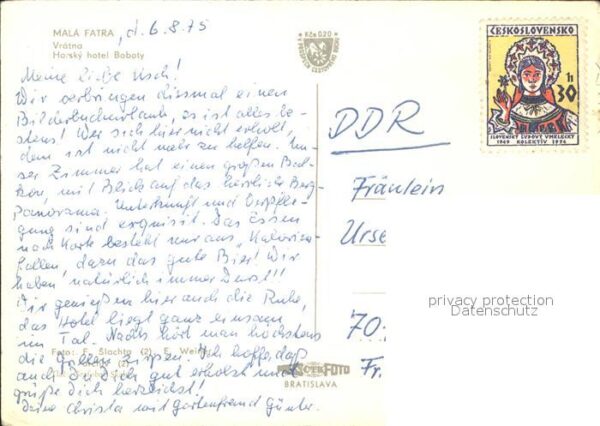 MALÁ FATRA, d. 6.8.75
Vrátna
Horský hotel Boboty
Meine liebe Usch!
Wir verbringen diesmal einen
Bilderbuchurlaub, es ist alles be-
stens! Wer sich hier nicht erholt,
dem ist nicht mehr zu helfen. Un-
ser Zimmer hat einen großen Bal-
kon, mit Blick auf das herrliche Berg-
panorama. Unterkunft und Verpfle-
gung sind exquisit. Das Essen
nach Karte besteht nur aus "Kalorien-
fallen, dazu das gute Bier! Wir
haben natürlich immer Durst!!!
Wir genießen hier auch die Ruhe,
das Hotel liegt ganz einsam
im Tal. Nachts hört man höchstens
die Grillen zirpen. Ich hoffe, daß
auch Du Dich gut erholst und
grüße Dich herzlichst!
Deine Christa mit Gartenfreund Günter.
Foto: F. Slachta (2) E. Wei
Kčs 0,20
BRATISLAVA
ČESKOSLOVENSKO
30 h
SLOVENSKÝ ĽUDOVÝ UMELECKÝ
1949 KOLEKTÍV 1974
DDR
Fräulein
Urse
70
Fr.
privacy protection
Datenschutz